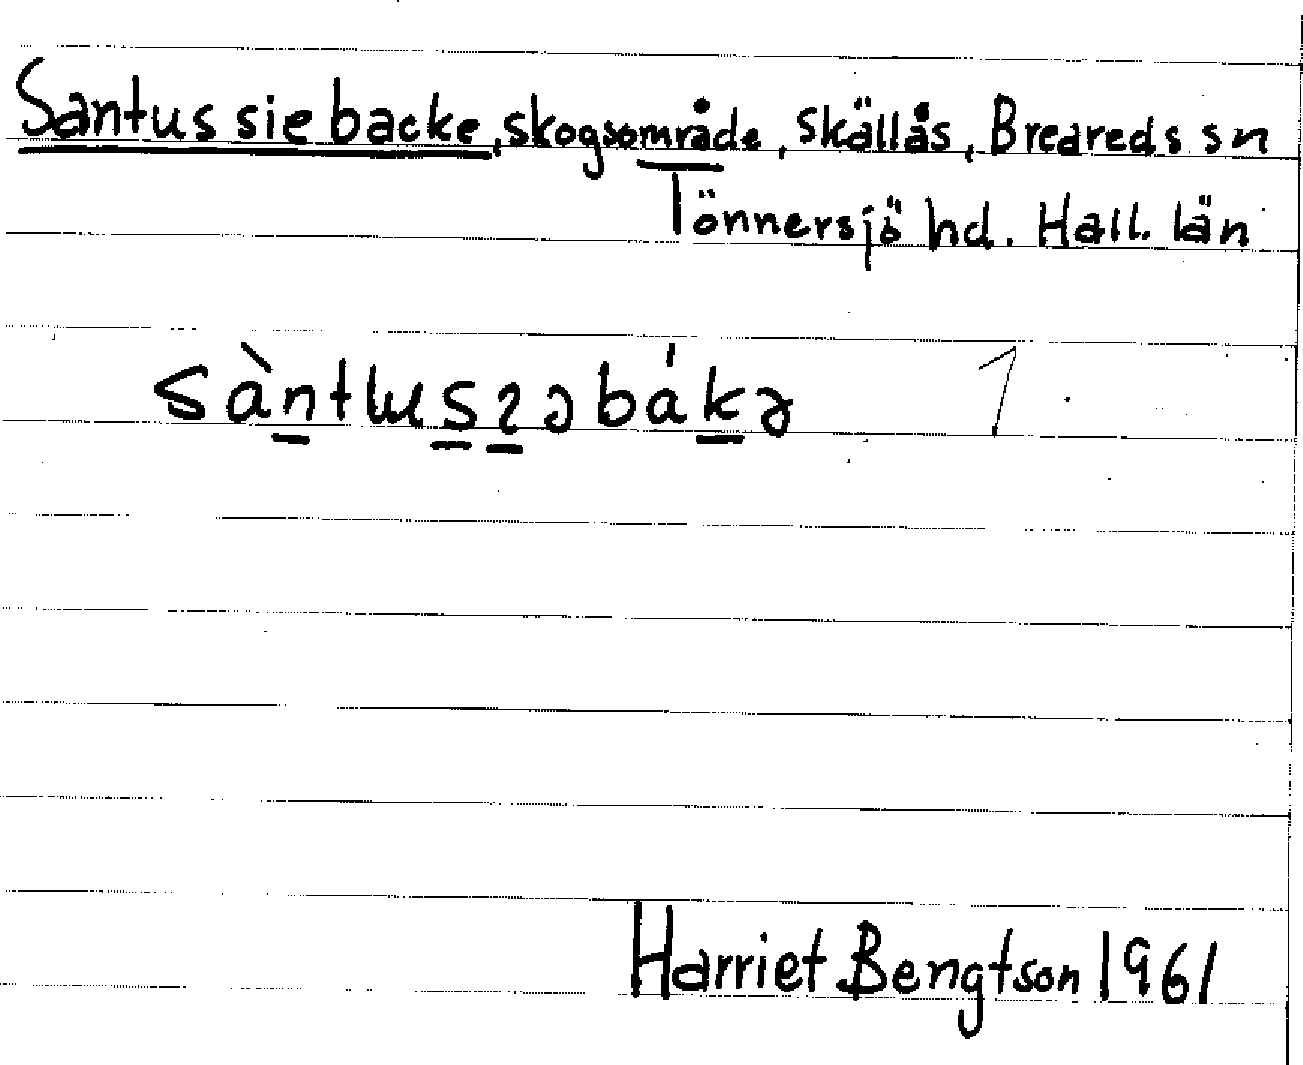 Santus sie backe, skogsområde, Skällås, Breareds sn
Tönnersjö hd. Hall. län
1
Harriet Bengtson 1961